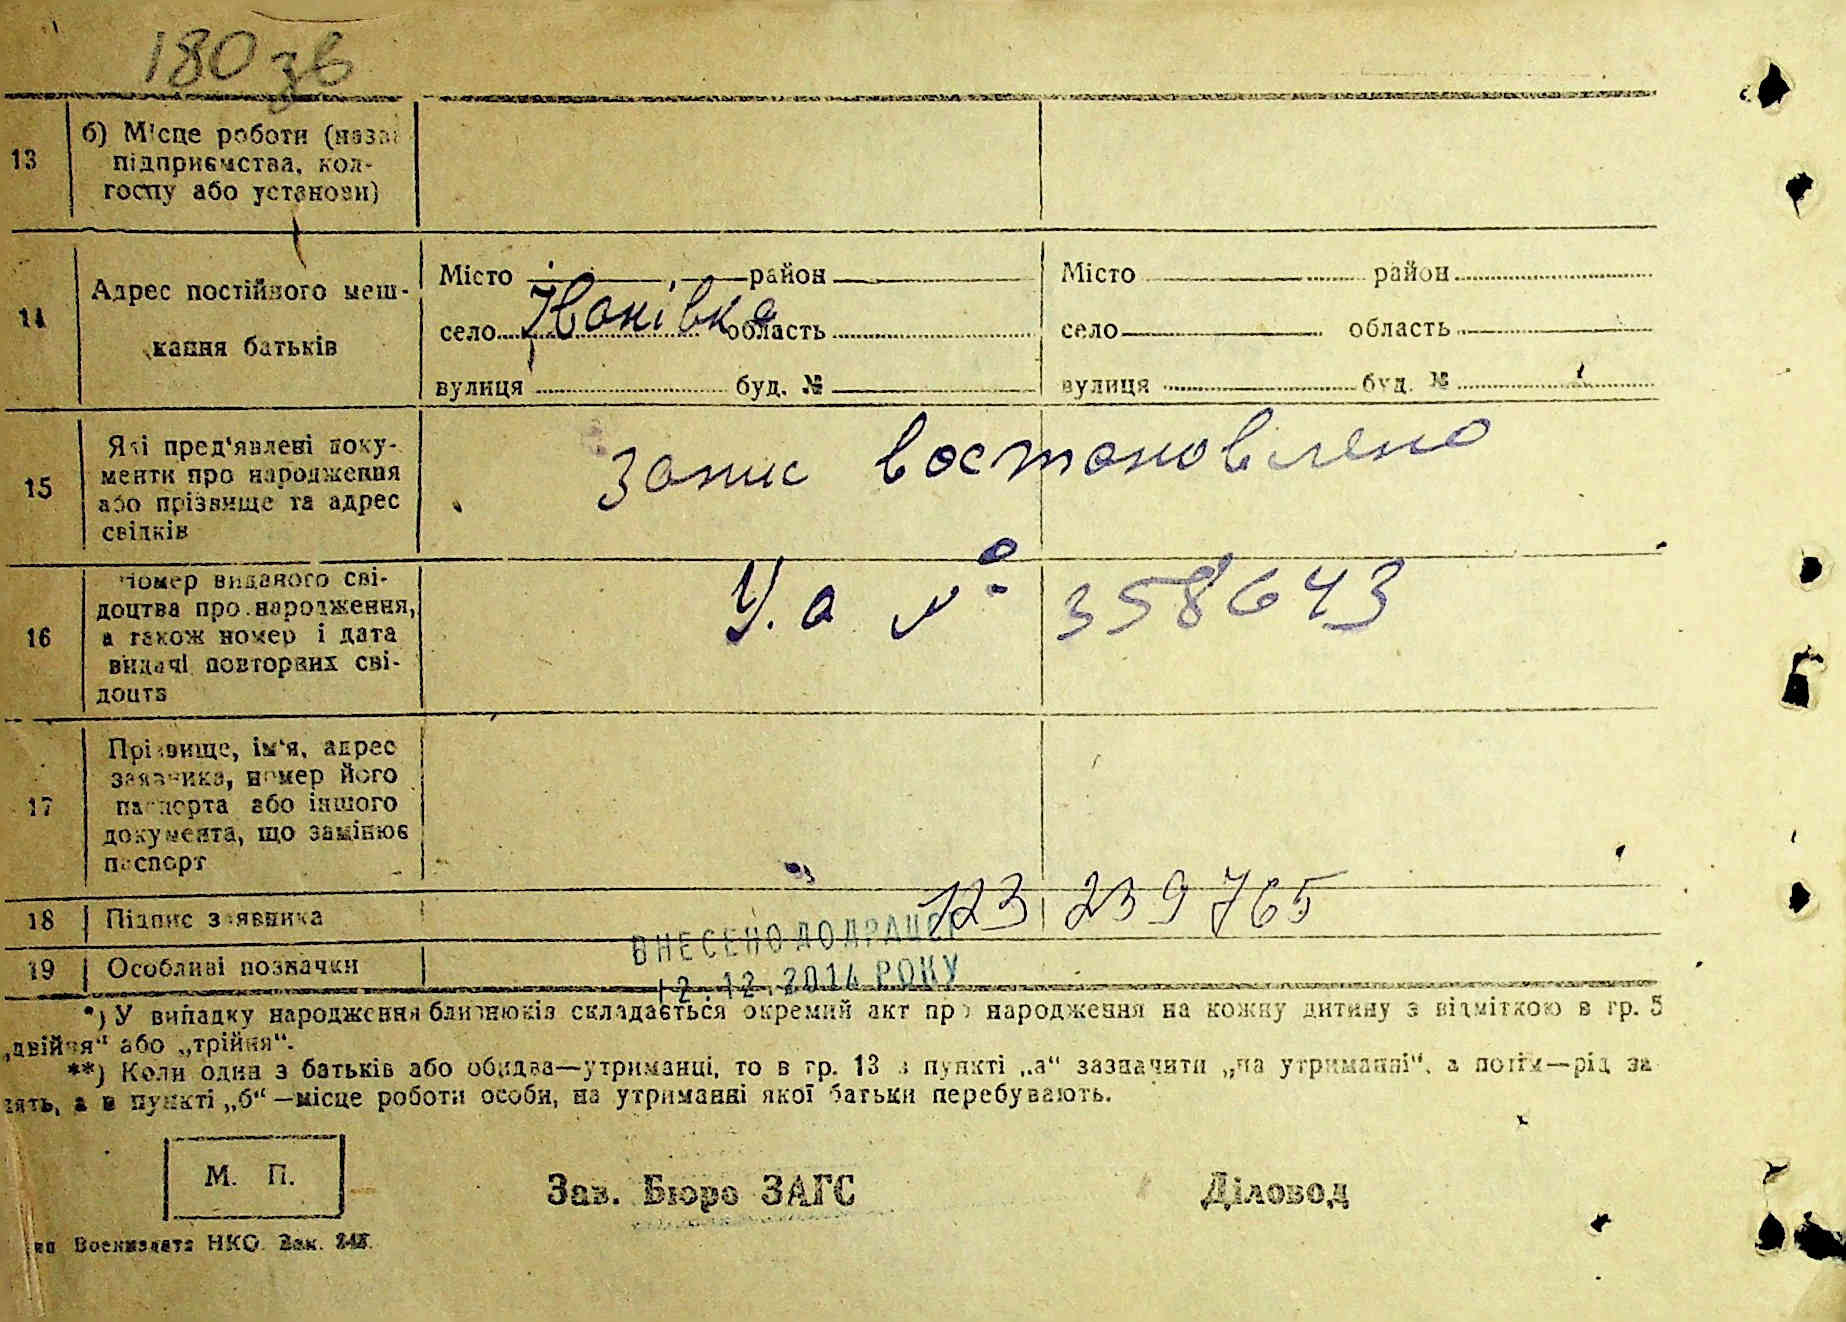 180 зв
13
б) Місце роботи (назва
підприємства, кол-
госпу або установи)
14
Адрес постійного меш-
кання батьків
Місто район
село область
вулиця буд. №
Місто район
село область
вулиця буд. №
15
Які пред'явлені доку-
менти про народження
або прізвище та адрес
свідків
запис востановлено
16
Номер виданого сві-
доцтва про народження,
а також номер і дата
видачі повторних сві-
доцтв
У.а № 358643
17
Прізвище, ім'я, адрес
заявника, номер його
паспорта або іншого
документа, що замінює
паспорт
18
Підпис заявника
123 239 765
19
Особливі позначки
ВНЕСЕНО ДО ДРАЦСГ
12.12.2014 РОКУ
*) У випадку народження близнюків складається окремий акт про народження на кожну дитину з відміткою в гр. 5
„двійня“ або „трійня“.
**) Коли один з батьків або обидва—утриманці, то в гр. 13 в пункті „а“ зазначити „на утриманні“, а потім—рід за
нять, а в пункті „б“—місце роботи особи, на утриманні якої батьки перебувають.
М. П.
Зав. Бюро ЗАГС
Діловод
Воениздата НКО. Зак.